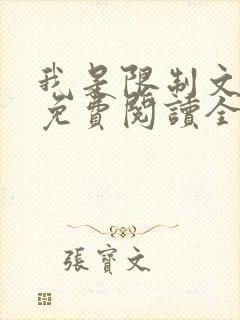 我是限制文
免費閱讀全
張寶文